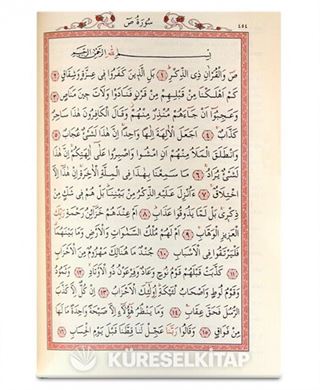 ٤٥٤ سُورَةُ صٓ
بِسْمِ اللّٰهِ الرَّحْمٰنِ الرَّحٖيمِ
صٓ وَالْقُرْاٰنِ ذِى الذِّكْرِ ١ بَلِ الَّذٖينَ كَفَرُوا فٖى عِزَّةٍ وَشِقَاقٍ ٢
كَمْ اَهْلَكْنَا مِنْ قَبْلِهِمْ مِنْ قَرْنٍ فَنَادَوْا وَلَاتَ حٖينَ مَنَاصٍ ٣
وَعَجِبُٓوا اَنْ جَٓاءَهُمْ مُنْذِرٌ مِنْهُمْ وَقَالَ الْكَافِرُونَ هٰذَا سَاحِرٌ
كَذَّابٌ ٤ اَجَعَلَ الْاٰلِهَةَ اِلٰهًا وَاحِدًا اِنَّ هٰذَا لَشَىْءٌ عُجَابٌ ٥
وَانْطَلَقَ الْمَلَاُ مِنْهُمْ اَنِ امْشُوا وَاصْبِرُوا عَلٰٓى اٰلِهَتِكُمْ اِنَّ هٰذَا
لَشَىْءٌ يُرَادُ ٦ مَا سَمِعْنَا بِهٰذَا فِى الْمِلَّةِ الْاٰخِرَةِ اِنْ هٰذَٓا اِلَّا
اخْتِلَاقٌ ٧ ءَاُنْزِلَ عَلَيْهِ الذِّكْرُ مِنْ بَيْنِنَا بَلْ هُمْ فٖى شَكٍّ مِنْ
ذِكْرٖى بَلْ لَمَّا يَذُوقُوا عَذَابِ ٨ اَمْ عِنْدَهُمْ خَزَٓائِنُ رَحْمَةِ رَبِّكَ
الْعَزٖيزِ الْوَهَّابِ ٩ اَمْ لَهُمْ مُلْكُ السَّمٰوَاتِ وَالْاَرْضِ وَمَا بَيْنَهُمَا
فَلْيَرْتَقُوا فِى الْاَسْبَابِ ١٠ جُنْدٌ مَا هُنَالِكَ مَهْزُومٌ مِنَ الْاَحْزَابِ
١١ كَذَّبَتْ قَبْلَهُمْ قَوْمُ نُوحٍ وَعَادٌ وَفِرْعَوْنُ ذُو الْاَوْتَادِ ١٢ وَثَمُودُ
وَقَوْمُ لُوطٍ وَاَصْحَابُ لْـَٔيْكَةِ اُولٰٓئِكَ الْاَحْزَابُ ١٣ اِنْ كُلٌّ اِلَّا كَذَّبَ
الرُّسُلَ فَحَقَّ عِقَابِ ١٤ وَمَا يَنْظُرُ هٰٓؤُلَٓاءِ اِلَّا صَيْحَةً وَاحِدَةً مَا لَهَا
مِنْ فَوَاقٍ ١٥ وَقَالُوا رَبَّنَا عَجِّلْ لَنَا قِطَّنَا قَبْلَ يَوْمِ الْحِسَابِ ١٦
KÜRESELKİTAP